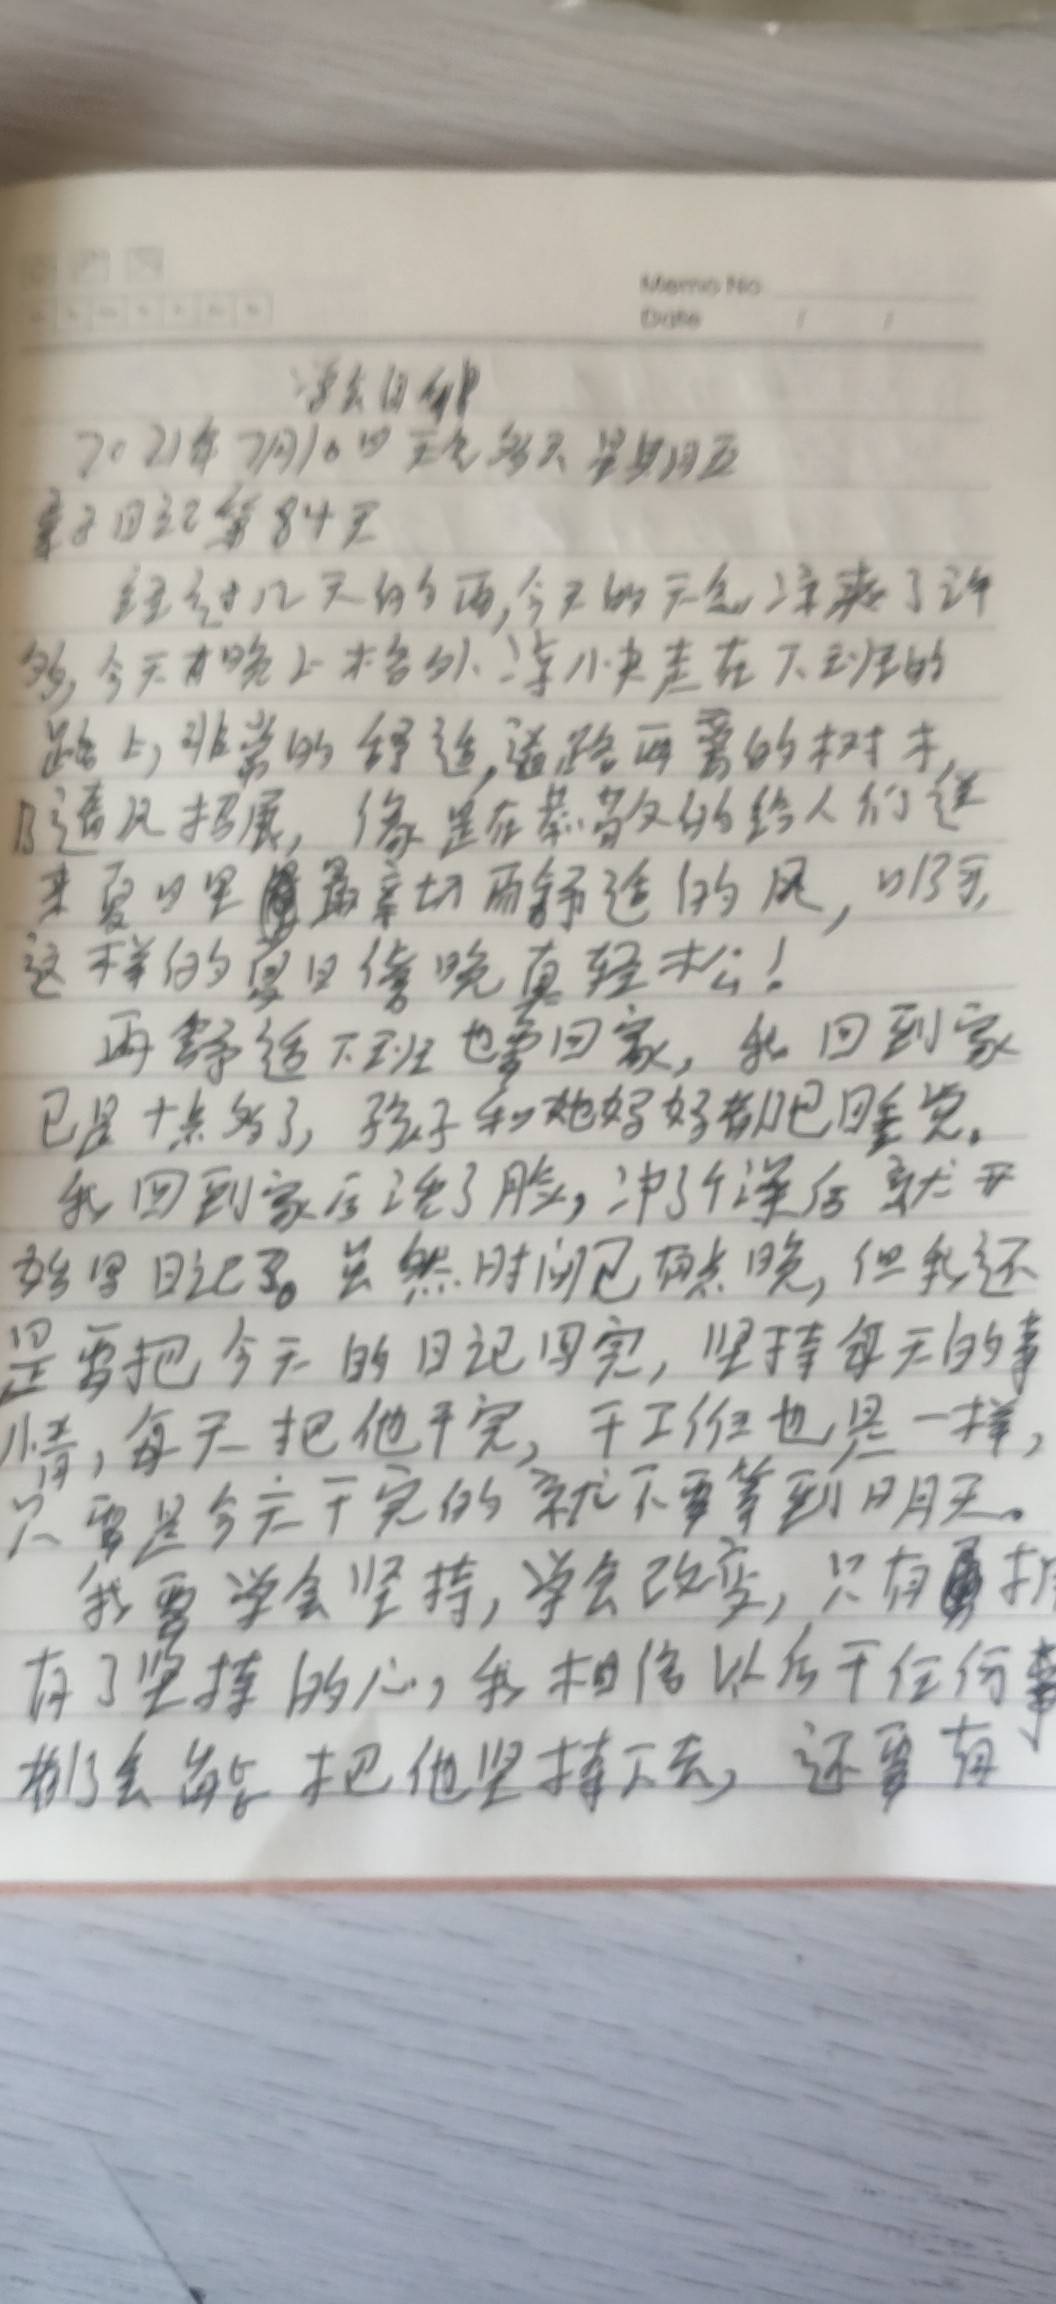 Memo No
Date / /
学会自律
2021年7月10日 天气多云 星期五
亲子日记第84天
经过几天的雨,今天的天气凉爽了许
多,今天有晚上格外凉快走在下班的
路上,非常的舒适,道路两旁的树木,
随着风招展,像是在恭敬的给人们送
来夏日里最亲切而舒适的风,
这样的夏日傍晚真轻松!
再舒适下班也要回家,我回到家
已是十点多了,孩子和她妈妈都已睡觉。
我回到家后洗了脸,冲了个澡后就开
始写日记了。虽然时间已有点晚,但我还
是要把今天的日记写完,坚持每天的事
情,每天把他干完,干工作也是一样,
只要是今天干完的就不要等到明天。
我要学会坚持,学会改变,只有拥
有了坚持的心,我相信以后干任何事
都会能把他坚持下去,还要有